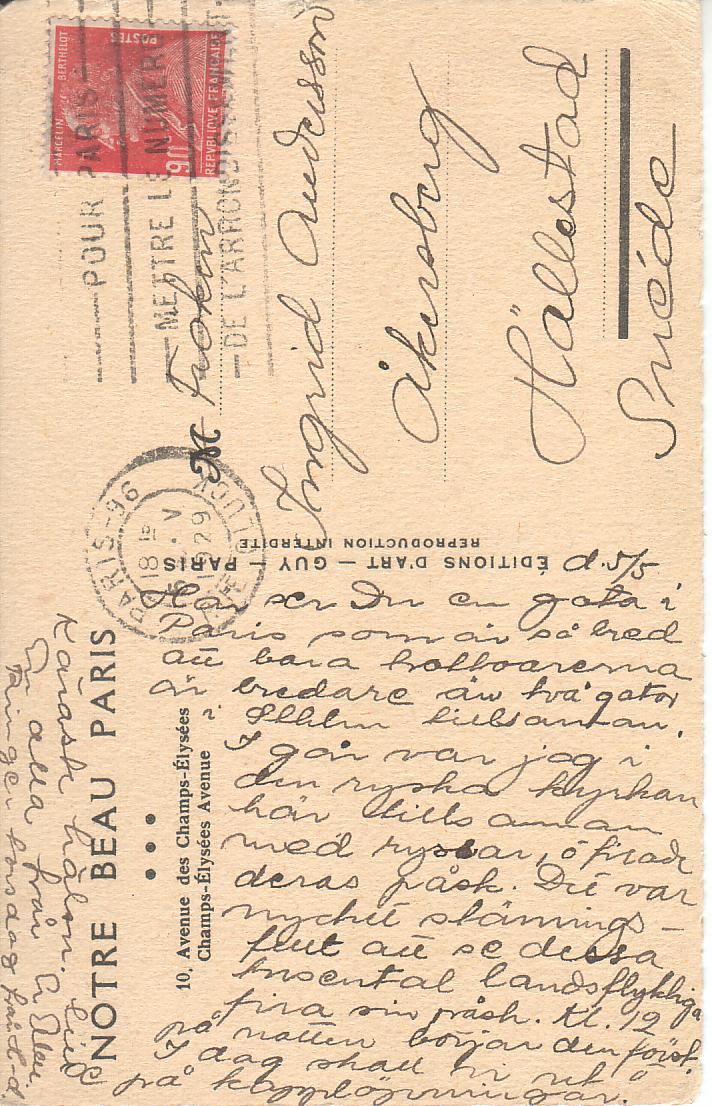 MARCELIN BERTHELOT
POSTES
REPVBLIQVE FRANÇAISE
POUR PARIS
METTRE LE NUMERO
DE L'ARRONDISSEMENT
PARIS-96
18
V
1929
GLUCK
M Fröken
Ingrid Andersson
Åkersberg
Hällestad
Suéde
ÉDITIONS D'ART — GUY — PARIS
REPRODUCTION INTERDITE
NOTRE BEAU PARIS
10, Avenue des Champs-Élysées
Champs-Élysées Avenue
d. 5/5
Här ser Du en gata i
Paris som är så bred
att bara trottoarerna
är bredare än två gator
i Sthlm tillsamman.
I går var jag i
den ryska kyrkan
här tillsamman
med ryssar, o firade
deras påsk. Det var
mycket stämnings-
fullt att se dessa
tusental landsflyktiga
fira sin påsk. Kl. 12
på natten börjar den först.
I dag skall vi ut
på kapplöpningar.
Käraste hälsn. till
Er alla från